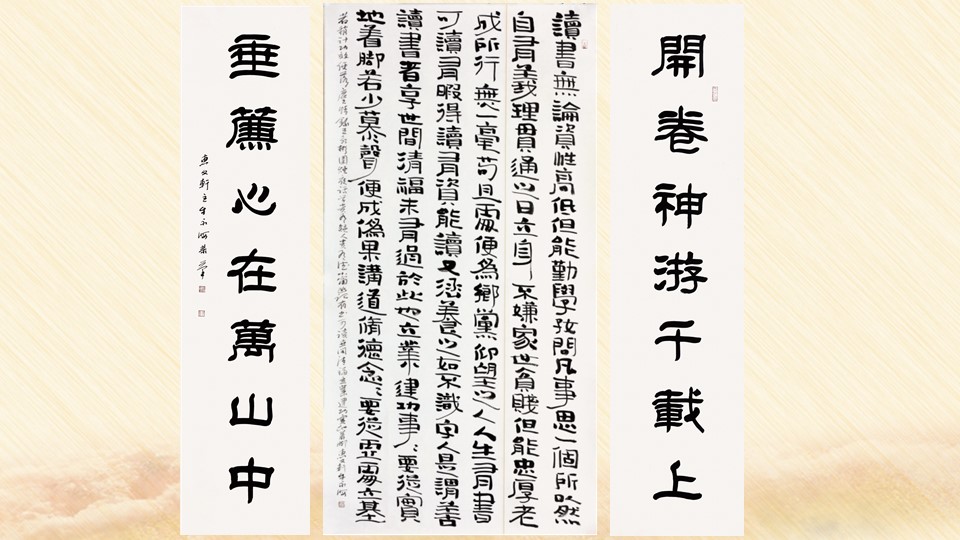 開卷神游千載上
讀書無論資性高低但能勤學好問凡事思一個所以然
自有義理貫通之日立身不嫌家世貧賤但能忠厚老
成所行無一毫苟且處便為鄉黨仰望之人人生有書
可讀有暇得讀有資能讀又涵養之如不識字人是謂善
讀書者享世間清福未有過於此也立業建功事〻要從實
地着脚若少慕聲便成偽果講道脩德念〻要從虛處立基
若稍計功效便落塵情
垂簾心在萬山中